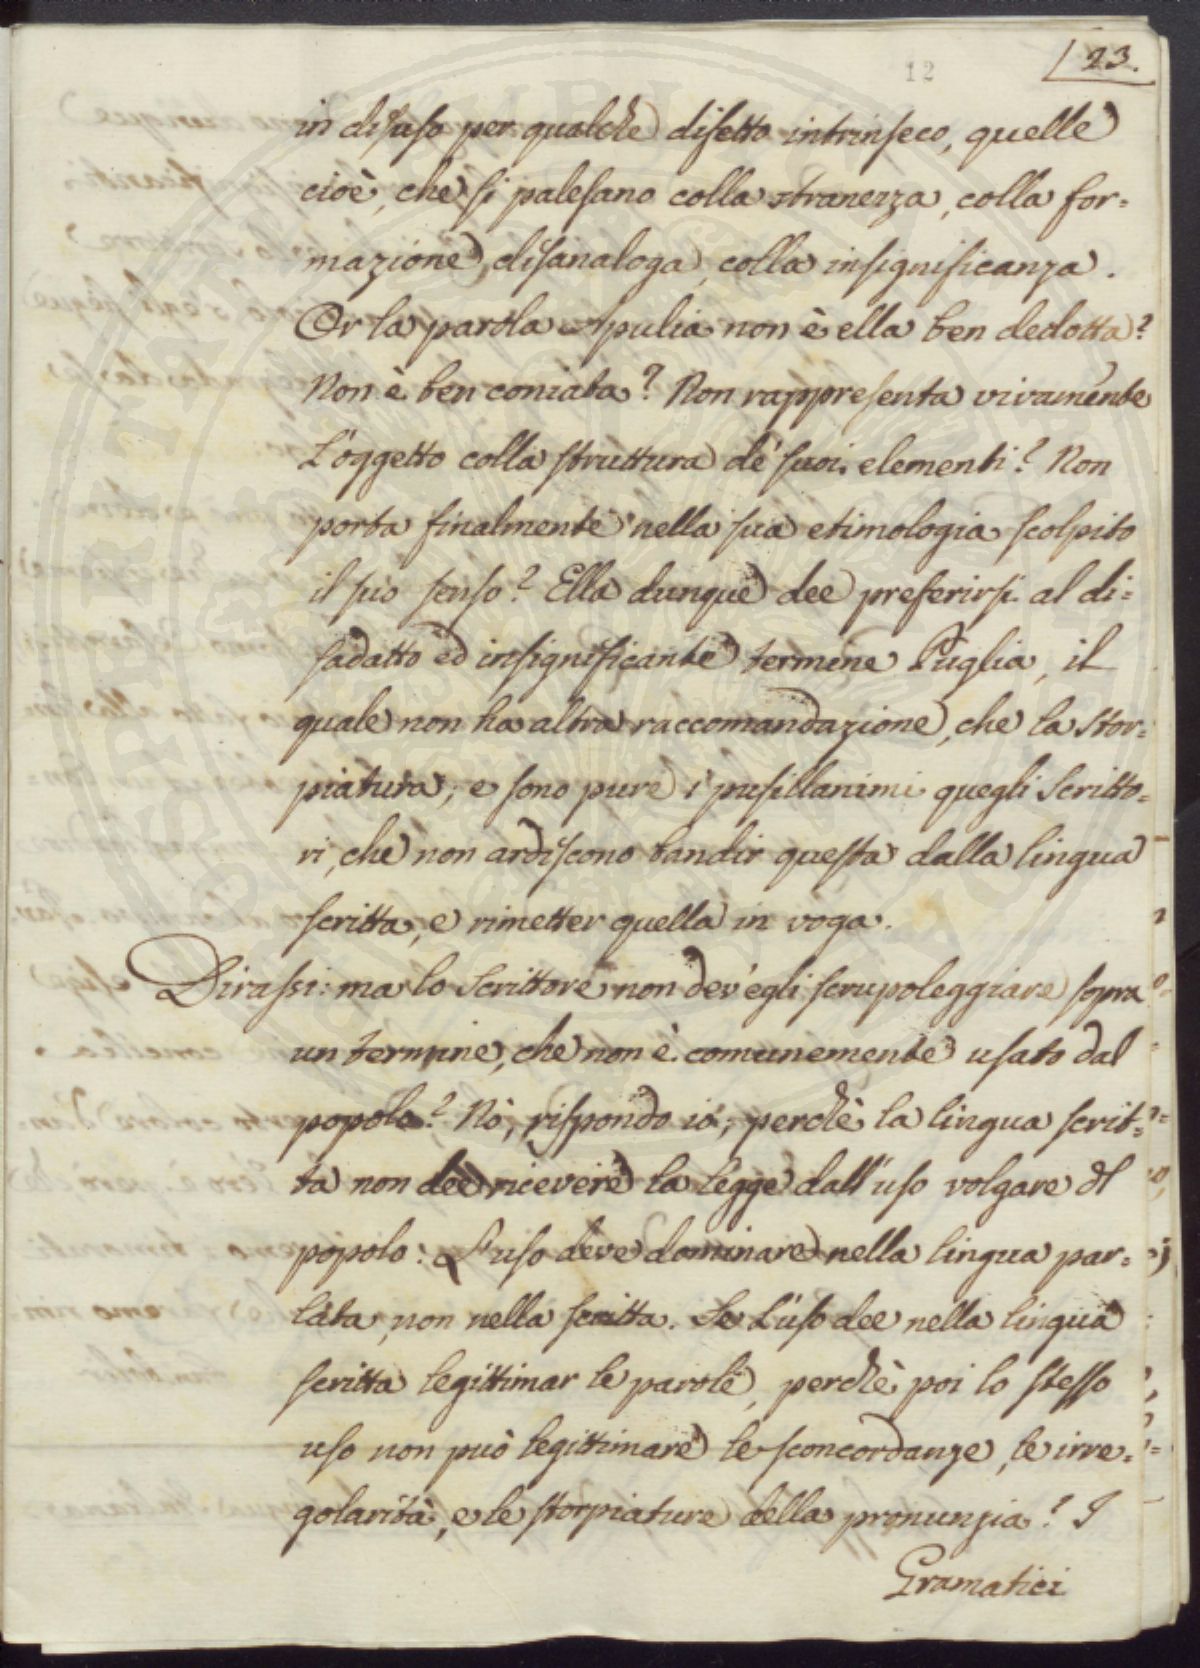 12
23.
in disuso per qualche difetto intrinseco, quelle
cioè, che si palesano colla stranezza, colla for=
mazione disanaloga, colla insignificanza.
Or la parola Apulia non è ella ben dedotta?
Non è ben coniata? Non rappresenta vivamente
l'oggetto colla struttura de' suoi elementi? Non
porta finalmente nella sua etimologia scolpito
il suo senso? Ella dunque dee preferirsi al di=
sadatto ed insignificante termine Puglia, il
quale non ha altra raccomandazione, che la stor=
piatura; e sono pure i pusillanimi quegli Scritto=
ri, che non ardiscono bandir questa dalla lingua
scritta, e rimetter quella in voga.
Dirassi: ma lo Scrittore non dev'egli scrupoleggiare sopra
un termine, che non è comunemente usato dal
popolo? Nò, rispondo io; perchè la lingua scrit=
ta non dee ricevere la legge dall'uso volgare dl
popolo: L'uso deve dominare nella lingua par=
lata, non nella scritta. Se l'uso dee nella lingua
scritta legittimar le parole, perchè poi lo stesso
uso non può legittimare le sconcordanze, le irre=
golarità, e le storpiature della pronunzia? I
Gramatici